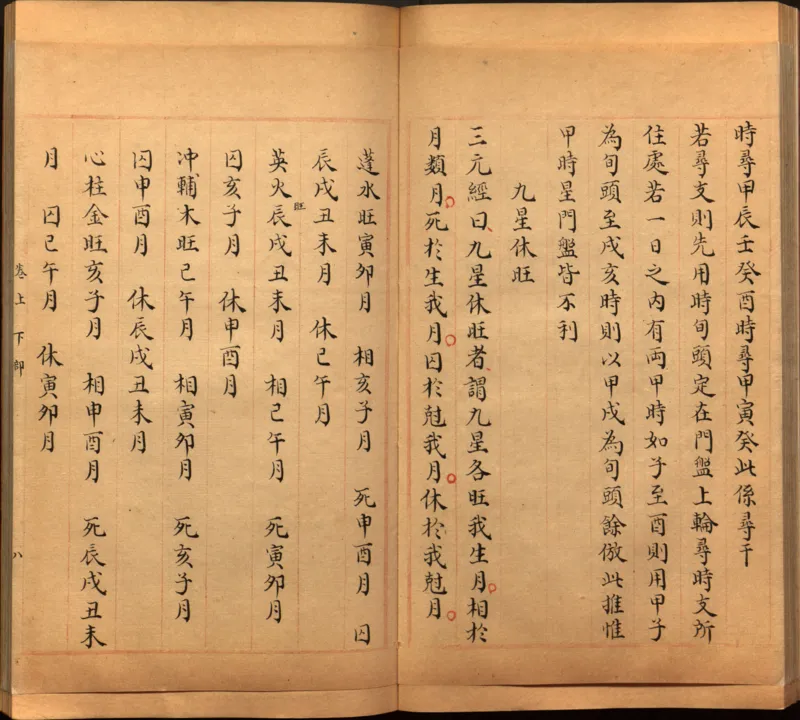 時尋甲辰壬癸酉時尋甲寅癸此係尋干
若尋支則先用時旬頭定在門盤上輪尋時支所
住處若一日之內有兩甲時如子至酉則用甲子
為旬頭至戌亥時則以甲戌為旬頭餘倣此推惟
甲時星門盤皆不利
九星休旺
三元經曰九星休旺者謂九星各旺我生月相於
月類月死於生我月囚於尅我月休於我尅月
蓬水旺寅夘月 相亥子月 死申酉月 囚
辰戌丑未月 休巳午月
英火旺辰戌丑未月 相巳午月 死寅夘月
囚亥子月 休申酉月
冲輔木旺巳午月 相寅夘月 死亥子月
囚申酉月 休辰戌丑未月
心柱金旺亥子月 相申酉月 死辰戌丑未
月 囚巳午月 休寅夘月
卷上 下部 八